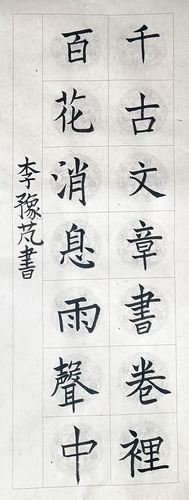 千古文章書卷裡
百花消息雨聲中
李豫芃書